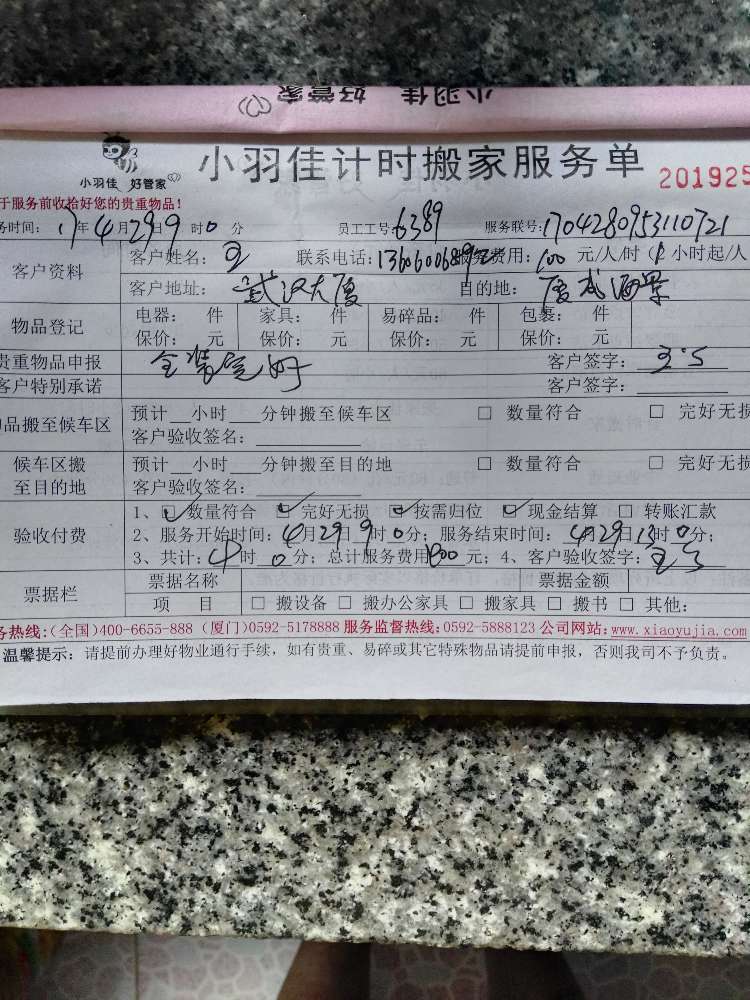 小羽佳 好管家
小羽佳 好管家
小羽佳计时搬家服务单
201925
于服务前收拾好您的贵重物品!
务时间: 17年4月29日9时0分 员工工号:6389 服务联号:1704280953110721
客户资料 客户姓名: 王 联系电话:1360600689 费用: 100 元/人/时 ( 小时起/人
客户地址: 武汉大厦 目的地:
物品登记 电器: 件 家具: 件 易碎品: 件 包裹: 件
保价: 元 保价: 元 保价: 元 保价: 元
贵重物品申报 客户签字:
客户特别承诺 客户签字:
物品搬至候车区 预计__小时__分钟搬至候车区 □ 数量符合 □ 完好无损
客户验收签名:
候车区搬至目的地 预计__小时__分钟搬至目的地 □ 数量符合 □ 完好无损
客户验收签名:
验收付费 1、☑数量符合 ☑完好无损 ☑按需归位 ☑现金结算 □ 转账汇款
2、服务开始时间: 4月29日9时0分; 服务结束时间: 4月29日13时0分;
3、共计: 4时0分; 总计服务费用 元; 4、客户验收签字:
票据栏 票据名称 票据金额
项 目 □ 搬设备 □ 搬办公家具 □ 搬家具 □ 搬书 □ 其他:
务热线:(全国)400-6655-888 (厦门)0592-5178888 服务监督热线:0592-5888123 公司网站:www.xiaoyujia.com
温馨提示: 请提前办理好物业通行手续,如有贵重、易碎或其它特殊物品请提前申报,否则我司不予负责。